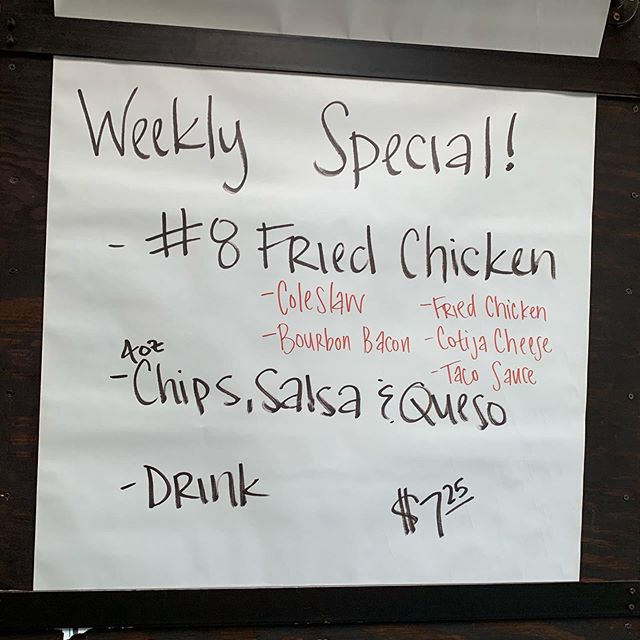 Weekly Special!
- #8 Fried Chicken
- Coleslaw - Fried Chicken
- Bourbon Bacon - Cotija Cheese
- Taco Sauce
4oz
- Chips, Salsa & Queso
- Drink $7.25